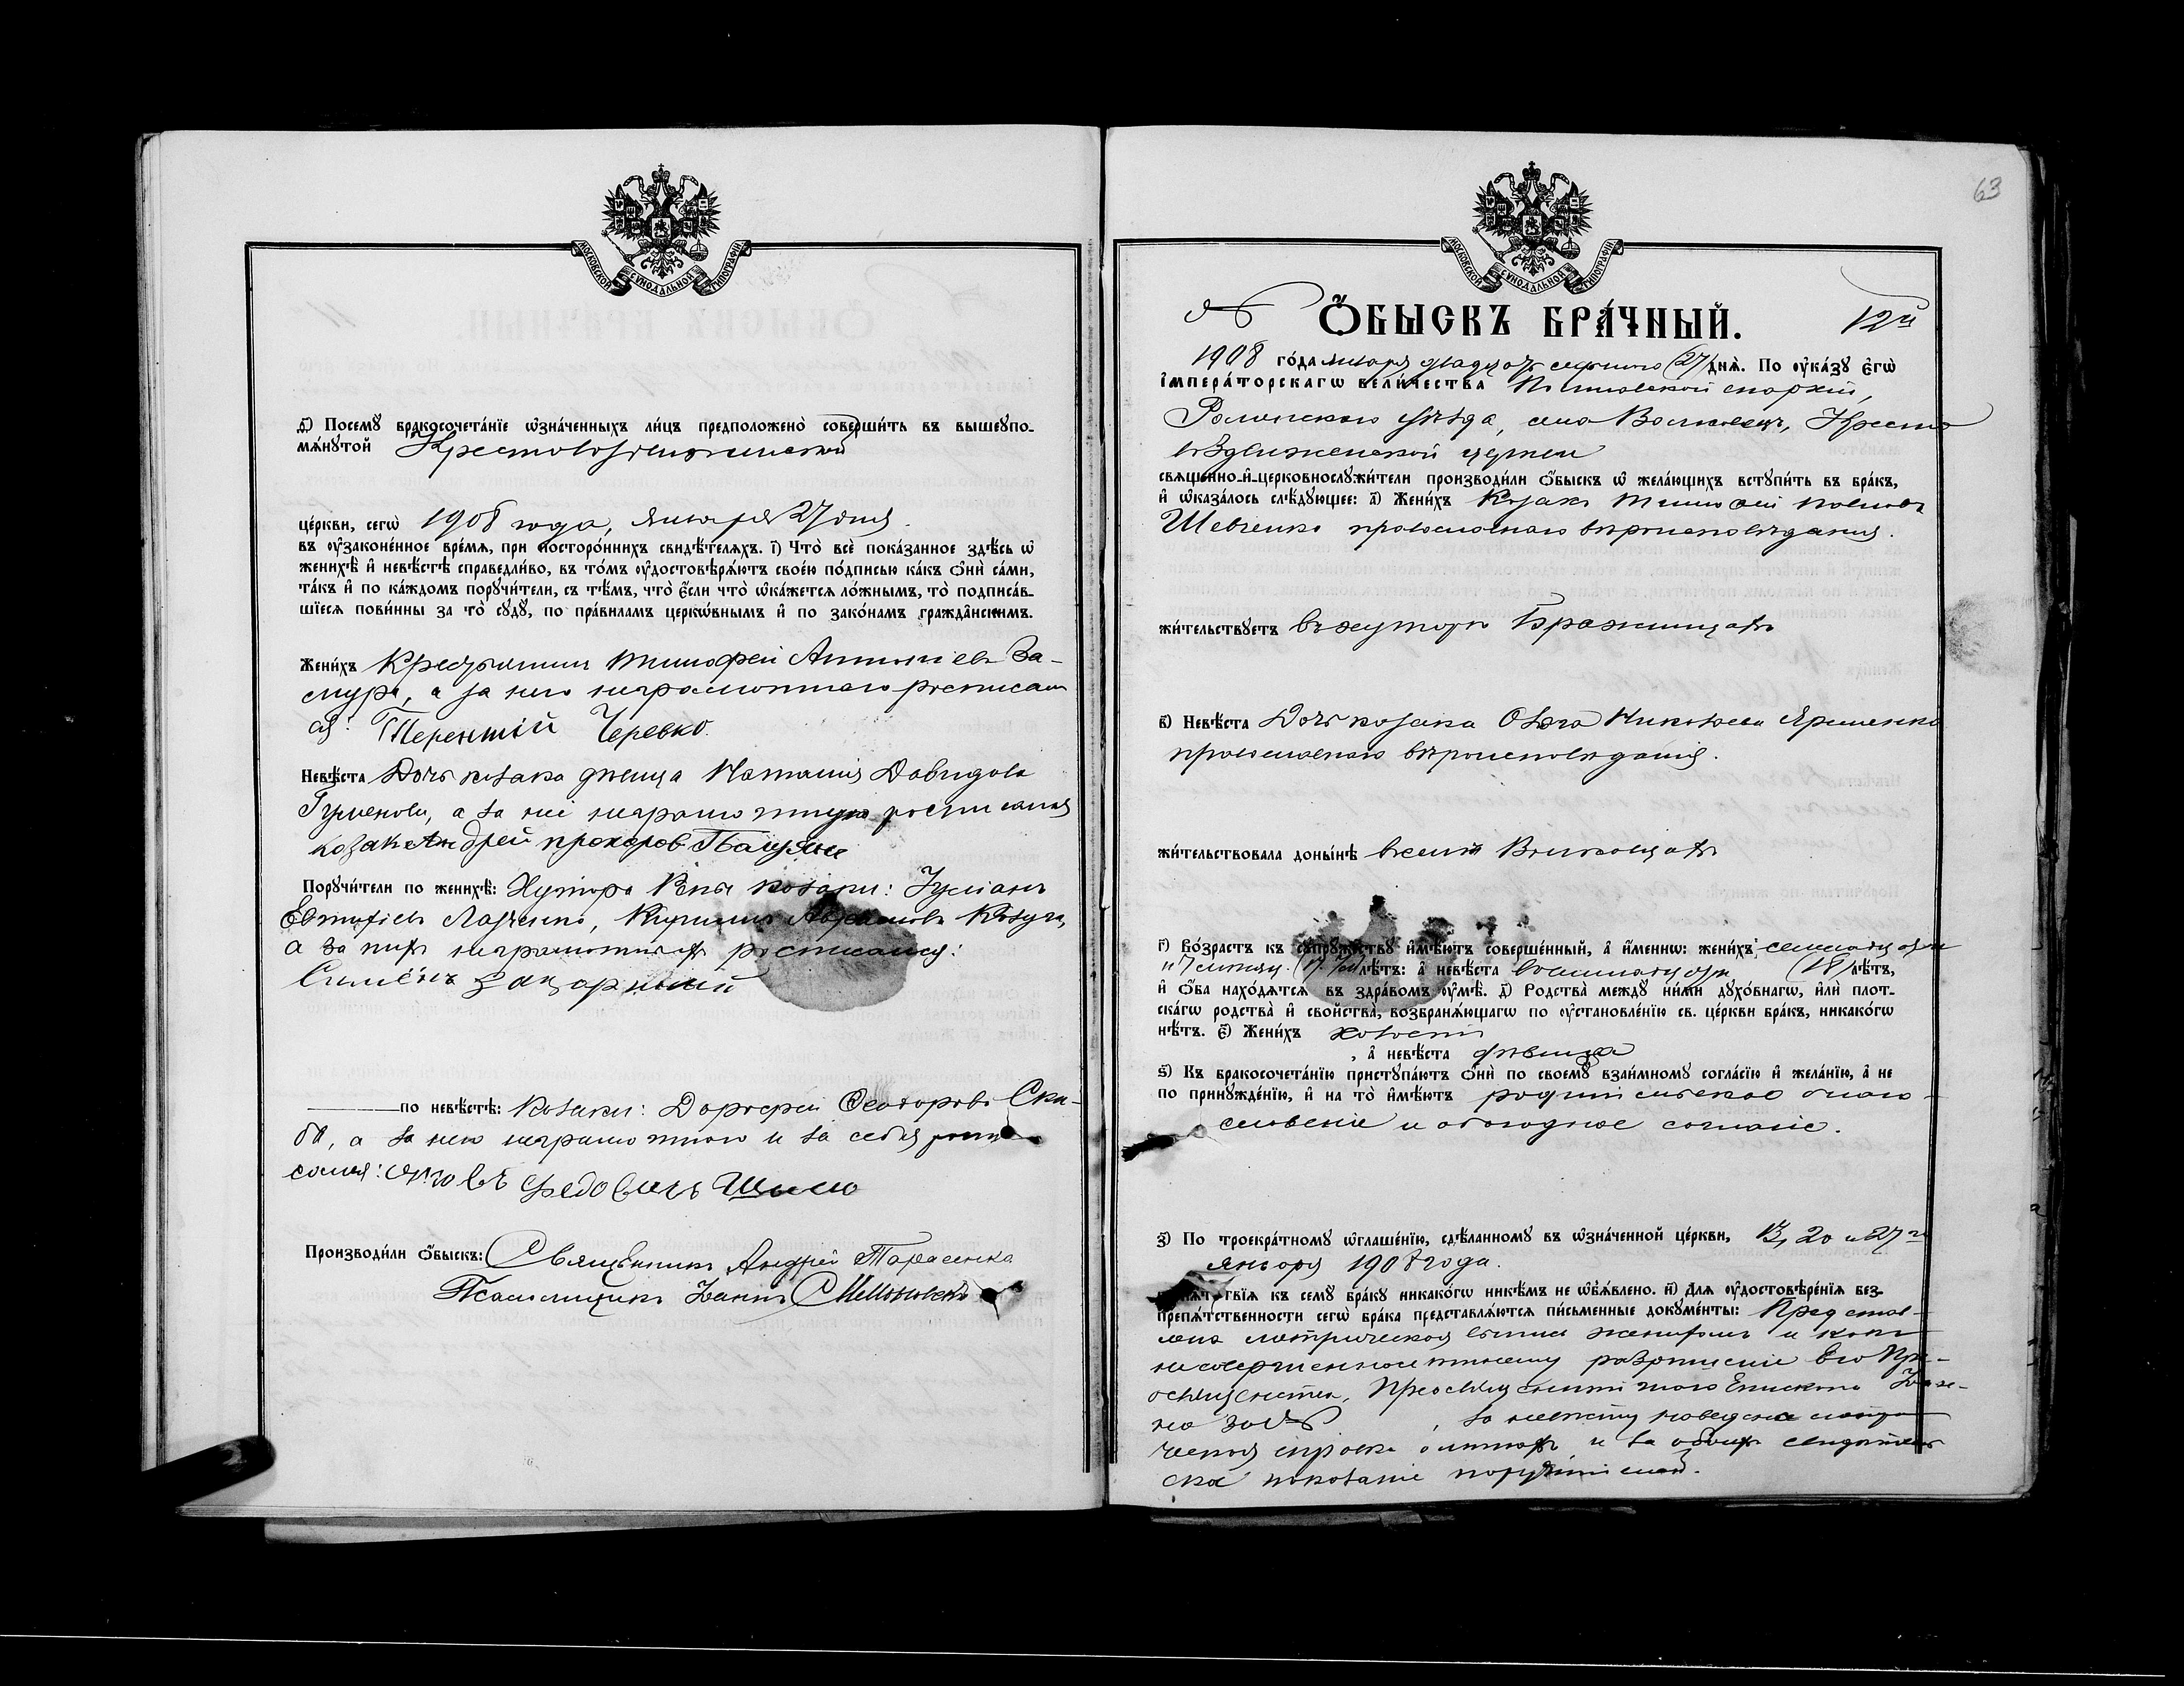 МОСКОВСКОЙ СѴНОДАЛЬНОЙ ТИПОГРАФІИ
д҃) Посемꙋ̀ бракосочета́нїе ѡ҆зна́ченныхъ ли́цъ предположено̀ соверши́ть въ вышеꙋпо-
мѧ́нꙋтой Крестовоздвиженской
це́ркви, сегѡ̀ 1908 года, января 27 дня.
въ ᲂу҆законе́нное вре́мѧ, при посторо́ннихъ свидѣ́телѧхъ. і҃) Что̀ всѐ пока́занное здѣ́сь ѡ҆
женихѣ̀ и҆ невѣ́стѣ справедли́во, въ то́мъ ᲂу҆достовѣрѧ́ютъ свое́ю по́дписью ка́къ ѻ҆нѝ са́ми,
та́къ и҆ по ка́ждомъ порꙋчи́тели, съ тѣ́мъ, что̀ є҆́сли что̀ ѡ҆ка́жетсѧ ло́жнымъ, то̀ подписа́в-
шїесѧ пови́нны за то̀ сꙋдꙋ̀, по пра́виламъ церкѡ́внымъ и҆ по зако́намъ гражда́нскимъ.
Жени́хъ Крестьянинъ Тимофей Антоніевъ За-
мура, а за него неграмотнаго росписал
ся: Терентій Черевко.
Невѣ́ста Дочь козака дѣвица Наталія Давидова
а за неё неграмотную росписался
козакъ Андрей прохоров
Порꙋчи́тели по женихѣ̀: Хутора козаки:
Евтихіевъ Кириллъ
а за нихъ неграмотныхъ росписался:
Симёнъ
по невѣ́стѣ: козаки: Дорофей Феодоровъ Ски-
ба, а за него неграмотного и за себя роспи
сался: Яковъ Федовичъ
Производи́ли ѻ҆́быскъ: Священникъ Андрей Тарасенко
Псаломщикъ Іоаннъ
63
МОСКОВСКОЙ СѴНОДАЛЬНОЙ ТИПОГРАФІИ
№ Ѻ҆́БЫСКЪ БРА́ЧНЫЙ. 12й
1908 го́да января двадцать седьмого (27) днѧ̀. По ᲂу҆ка́зꙋ є҆гѡ̀
і҆мпера́торскагѡ вели́чества Полтавской епархіи,
Роменскаго уѣзда, села Волковецъ, Кресто
воздвиженской церкви
свѧще́нно-и҆-церковнослꙋжи́тели производи́ли ѻ҆́быскъ ѡ҆ жела́ющихъ встꙋпи́ть въ бра́къ,
и҆ ѡ҆каза́лось слѣ́дꙋющее: а҃) Жени́хъ Козакъ Тимофей
Шевченко православнаго вѣроисповѣданія.
жи́тельствꙋетъ въ хуторѣ Бражницахъ
в҃) Невѣ́ста Дочь козака Ольга Николаева Ярменко
православнаго вѣроисповѣданія.
жи́тельствовала доны́нѣ въ селѣ Волковцахъ
г҃) Во́зрастъ къ сꙋпрꙋ́жествꙋ и҆мѣ́ютъ соверше́нный, а҆ и҆́менно: жени́хъ семнадцати
лѣ́тъ: а҆ невѣ́ста восемнадцати (18) лѣ́тъ,
и҆ ѻ҆́ба нахо́дѧтсѧ въ здра́вомъ ᲂу҆мѣ̀. д҃) Родства̀ междꙋ̀ ни́ми дꙋхо́внагѡ, и҆лѝ плот-
ска́гѡ родства̀ и҆ сво́йства, возбранѧ́ющагѡ по ᲂу҆становле́нїю св. це́ркви бра́къ, никако́гѡ
нѣ́тъ. є҃) Жени́хъ холостъ
, а҆ невѣ́ста дѣвица
ѕ҃) Къ бракосочета́нїю пристꙋпа́ютъ ѻ҆нѝ по своемꙋ̀ взаи́мномꙋ согла́сїю и҆ жела́нїю, а҆ не
по принꙋжде́нїю, и҆ на то̀ и҆мѣ́ютъ родительское благо-
словеніе и обоюдное согласіе.
з҃) По троекра́тномꙋ ѡ҆глаше́нїю, сдѣ́ланномꙋ въ ѡ҆зна́ченной це́ркви, 20 и 27го
января 1908 года.
препѧ́тствїѧ къ семꙋ̀ бра́кꙋ никако́гѡ никѣ́мъ не ѡ҆б̾ѧ́влено. и҃) Длѧ ᲂу҆достовѣре́нїѧ без-
препѧ́тственности сегѡ̀ бра́ка представлѧ́ютсѧ пи́сьменные докꙋме́нты: Представ-
лена метрическая выпись женихомъ и какъ
несовершеннолѣтнему разрѣшеніе Его Пре-
освященства, Преосвященнѣйшаго Епископа Іоан-
на за № , за невѣсту наведена метри
ческая справка о лѣтахъ и за обоихъ свидѣтель
ское показаніе поручителей.